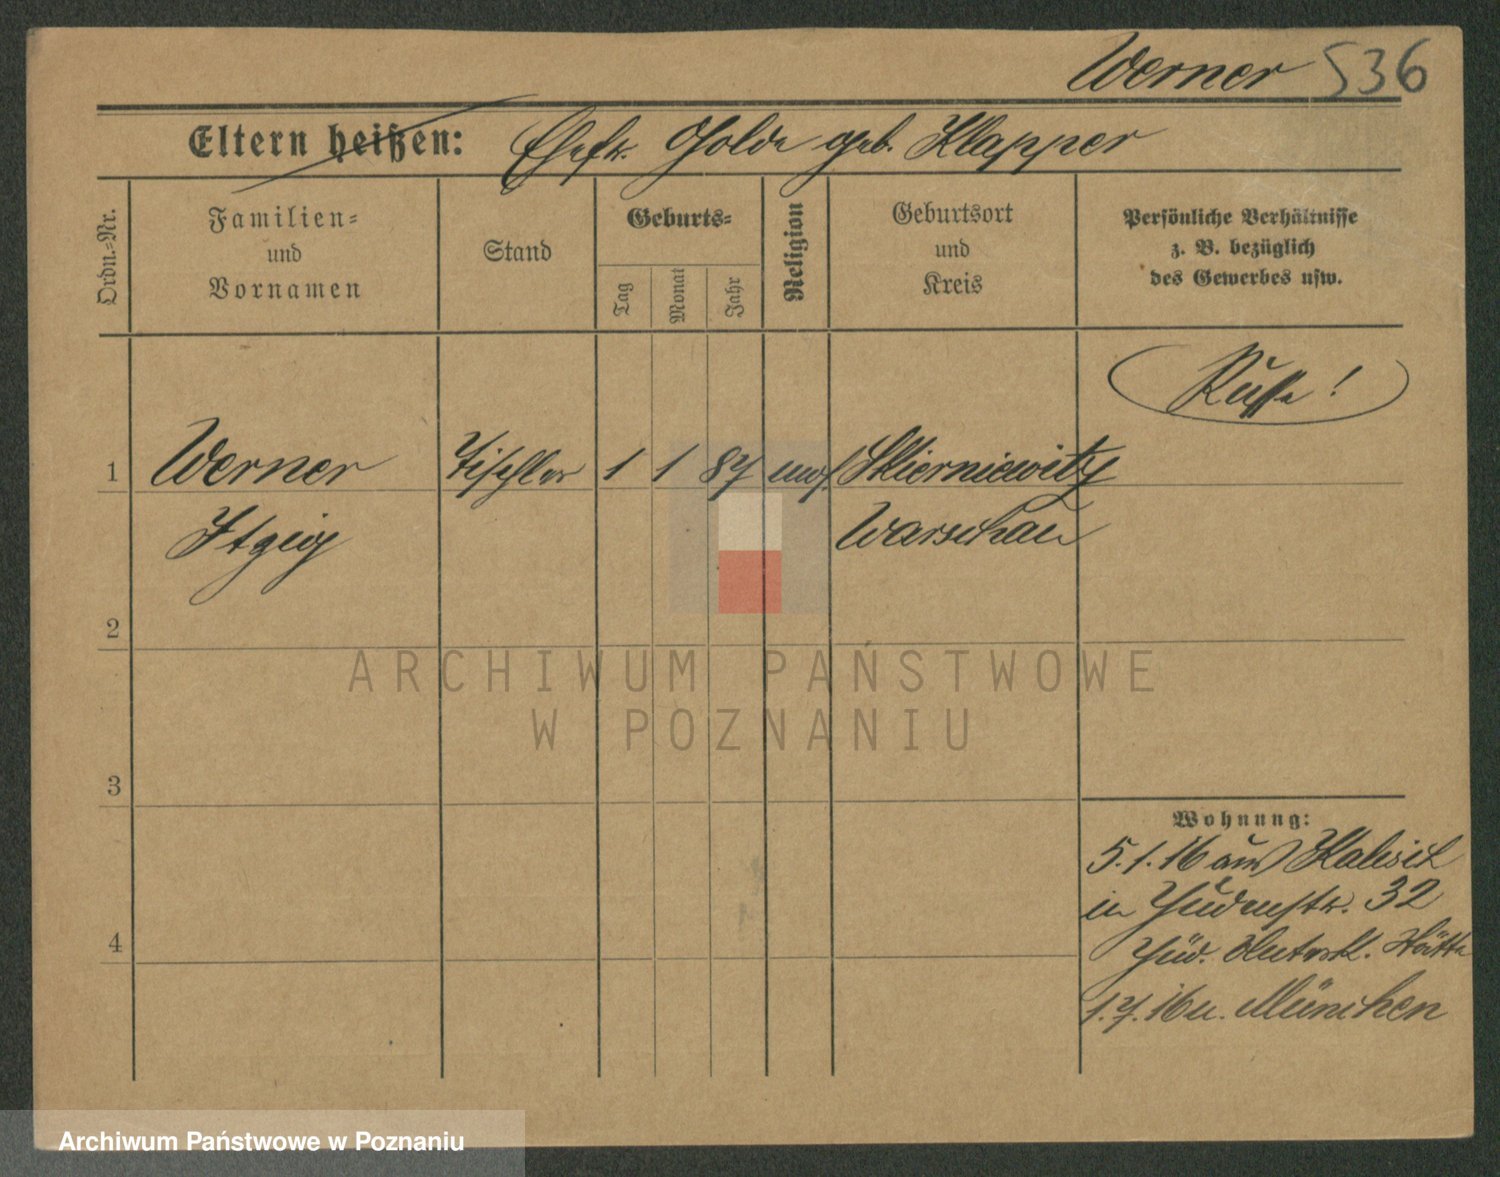 Werner 536
Eltern heißen: Ehefr. Golde geb. Klapper
Ordn.=Nr.
Familien=
und
Vornamen
Stand
Geburts=
Tag
Monat
Jahr
Religion
Geburtsort
und
Kreis
Persönliche Verhältnisse
z. B. bezüglich
des Gewerbes usw.
Russe!
1 Werner Tischler 1 1 87 mos. Skierniewitz
Itzig Warschau
2
ARCHIWUM PAŃSTWOWE
W POZNANIU
3
Wohnung:
5.1.16 aus Kalisch
in Judenstr. 32
4
Jüd.
1.7.16 n. München
Archiwum Państwowe w Poznaniu